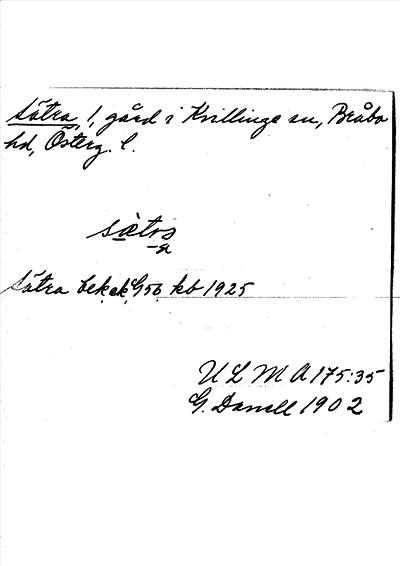 Sätra, 1, gård i Kvillinge sn, Bråbo
hd, Österg. l.
sætrɔ
-a
Sätra bek. ek. G56 kb 1925
ULMA 175:35
G. Danell 1902